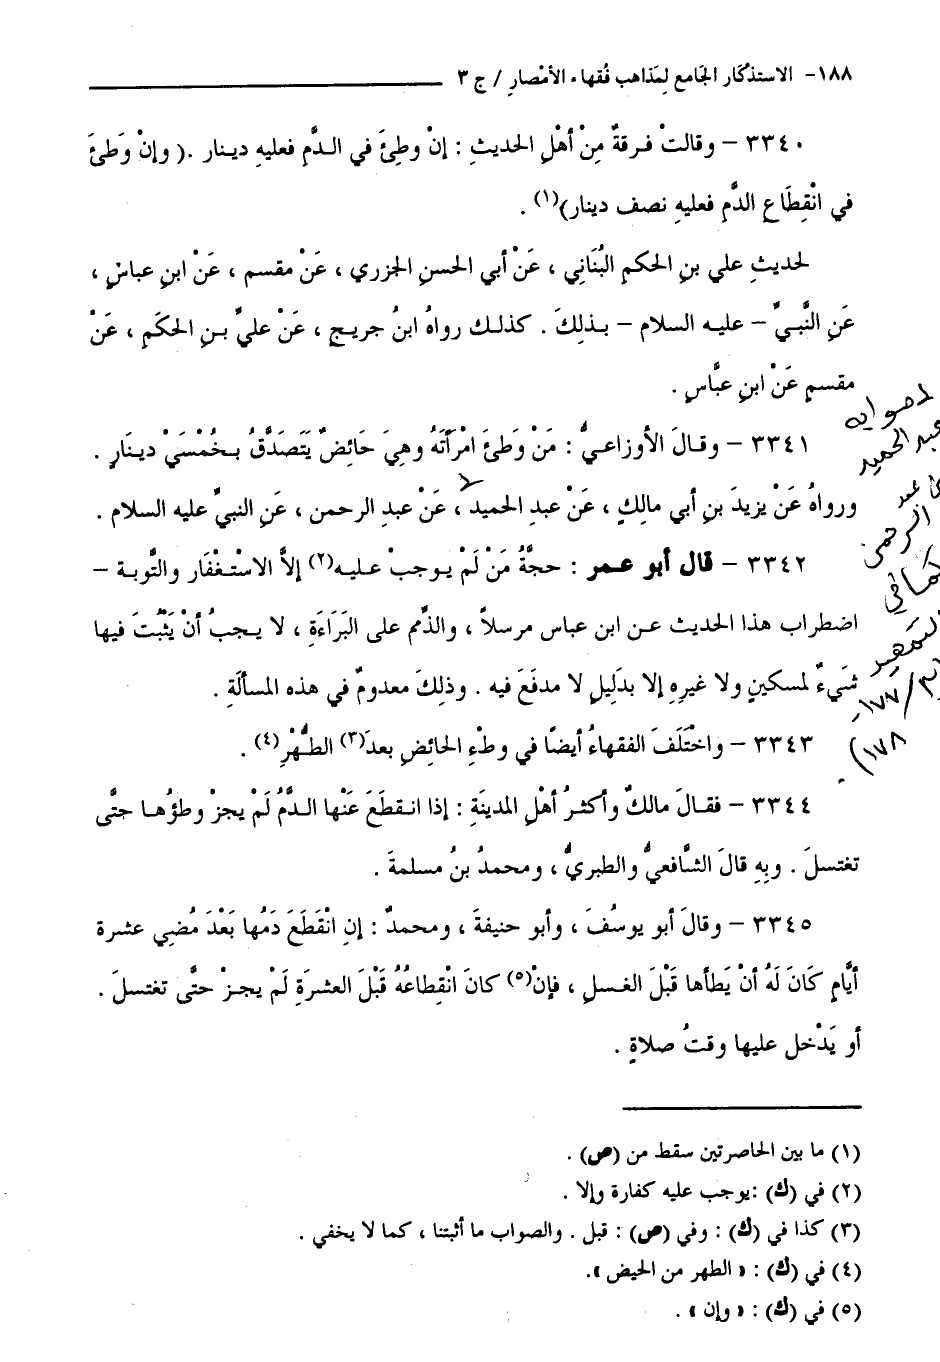 ١٨٨- الاستذكار الجامع لِمَذاهب فُقهاء الأمْصارِ / ج ٣
٣٣٤٠ – وقالتْ فرقةٌ مِنْ أهْلِ الحديثِ : إنْ وطِئَ في الدَّمِ فعليهِ دينار .( وإنْ وَطَئَ
في انْقِطَاعِ الدَّمِ فعليهِ نصف دينار)(١) .
لحديثِ علي بنِ الحكم البُنَانِي ، عَنْ أبي الحسنِ الجزري ، عَنْ مقسم ، عَنْ ابنِ عباسٍ ،
عَنِ النَّبيِّ – عليه السلام – بذلِكَ . كذلك رواهُ ابنُ جريج ، عَنْ عليِّ بنِ الحكَمِ ، عَنْ
مقسمٍ عَنْ ابنِ عبَّاسٍ .
٣٣٤١ – وقالَ الأوزاعيُّ : مَنْ وَطَئَ امْرَأَتَهُ وهِيَ حَائِضٌ يَتَصَدَّقُ بخُمْسَيْ دينَارٍ .
ورواهُ عَنْ يزيدَ بنِ أبي مالِكٍ ، عَنْ عبدِ الحميد ، عَنْ عبدِ الرحمن ، عَنِ النبيِّ عليه السلام .
٣٣٤٢ – قال أبو عمر : حجَّةُ مَنْ لَمْ يوجبْ عليه(٢) إلاَّ الاسْتغْفَار والتَّوبة –
اضطراب هذا الحديث عن ابن عباس مرسلاً ، والذِّمم على البَرَاءَةِ ، لا يجبُ أنْ يَثْبُتَ فيها
شَيءٌ لمسكينٍ ولا غيرِهِ إلا بدَلِيلٍ لا مدفَعَ فيه . وذلِكَ معدومٌ في هذه المسألَةِ .
٣٣٤٣ – واخْتَلَفَ الفقهاءُ أيضًا في وطْءِ الحائضِ بعدَ(٣) الطُّهْرِ(٤) .
٣٣٤٤ – فقالَ مالكٌ وأكثرُ أهْلِ المدينَةِ : إذا انقطَعَ عَنْها الدَّمُ لَمْ يجزْ وطؤُها حتَّى
تغتسلَ . وبِهِ قالَ الشَّافعيُّ والطبريُّ ، ومحمدُ بنُ مسلمةَ .
٣٣٤٥ – وقالَ أبو يوسُفَ ، وأبو حنيفةَ ، ومحمدٌ : إنِ انْقَطَعَ دَمُها بَعْدَ مُضِي عشرة
أيَّامٍ كَانَ لَهُ أنْ يَطَأها قَبْلَ الغسلِ ، فإنْ(٥) كانَ انْقِطاعُهُ قَبْلَ العشرَةِ لَمْ يجزْ حتَّى تغتسلَ .
أو يَدْخل عليها وقتُ صلاةٍ .
(١) ما بين الحاصرتين سقط من (ص) .
(٢) في (ك) :يوجب عليه كفارة وإلا .
(٣) كذا في (ك) : وفي (ص) : قبل . والصواب ما أثبتنا ، كما لا يخفي .
(٤) في (ك) : « الطهر من الحيض ».
(٥) في (ك) : « وإن » .
صوابه
عبد الحميد
عبد
الرحمن
كما في
التمهيد
١٧٧-
١٧٨)